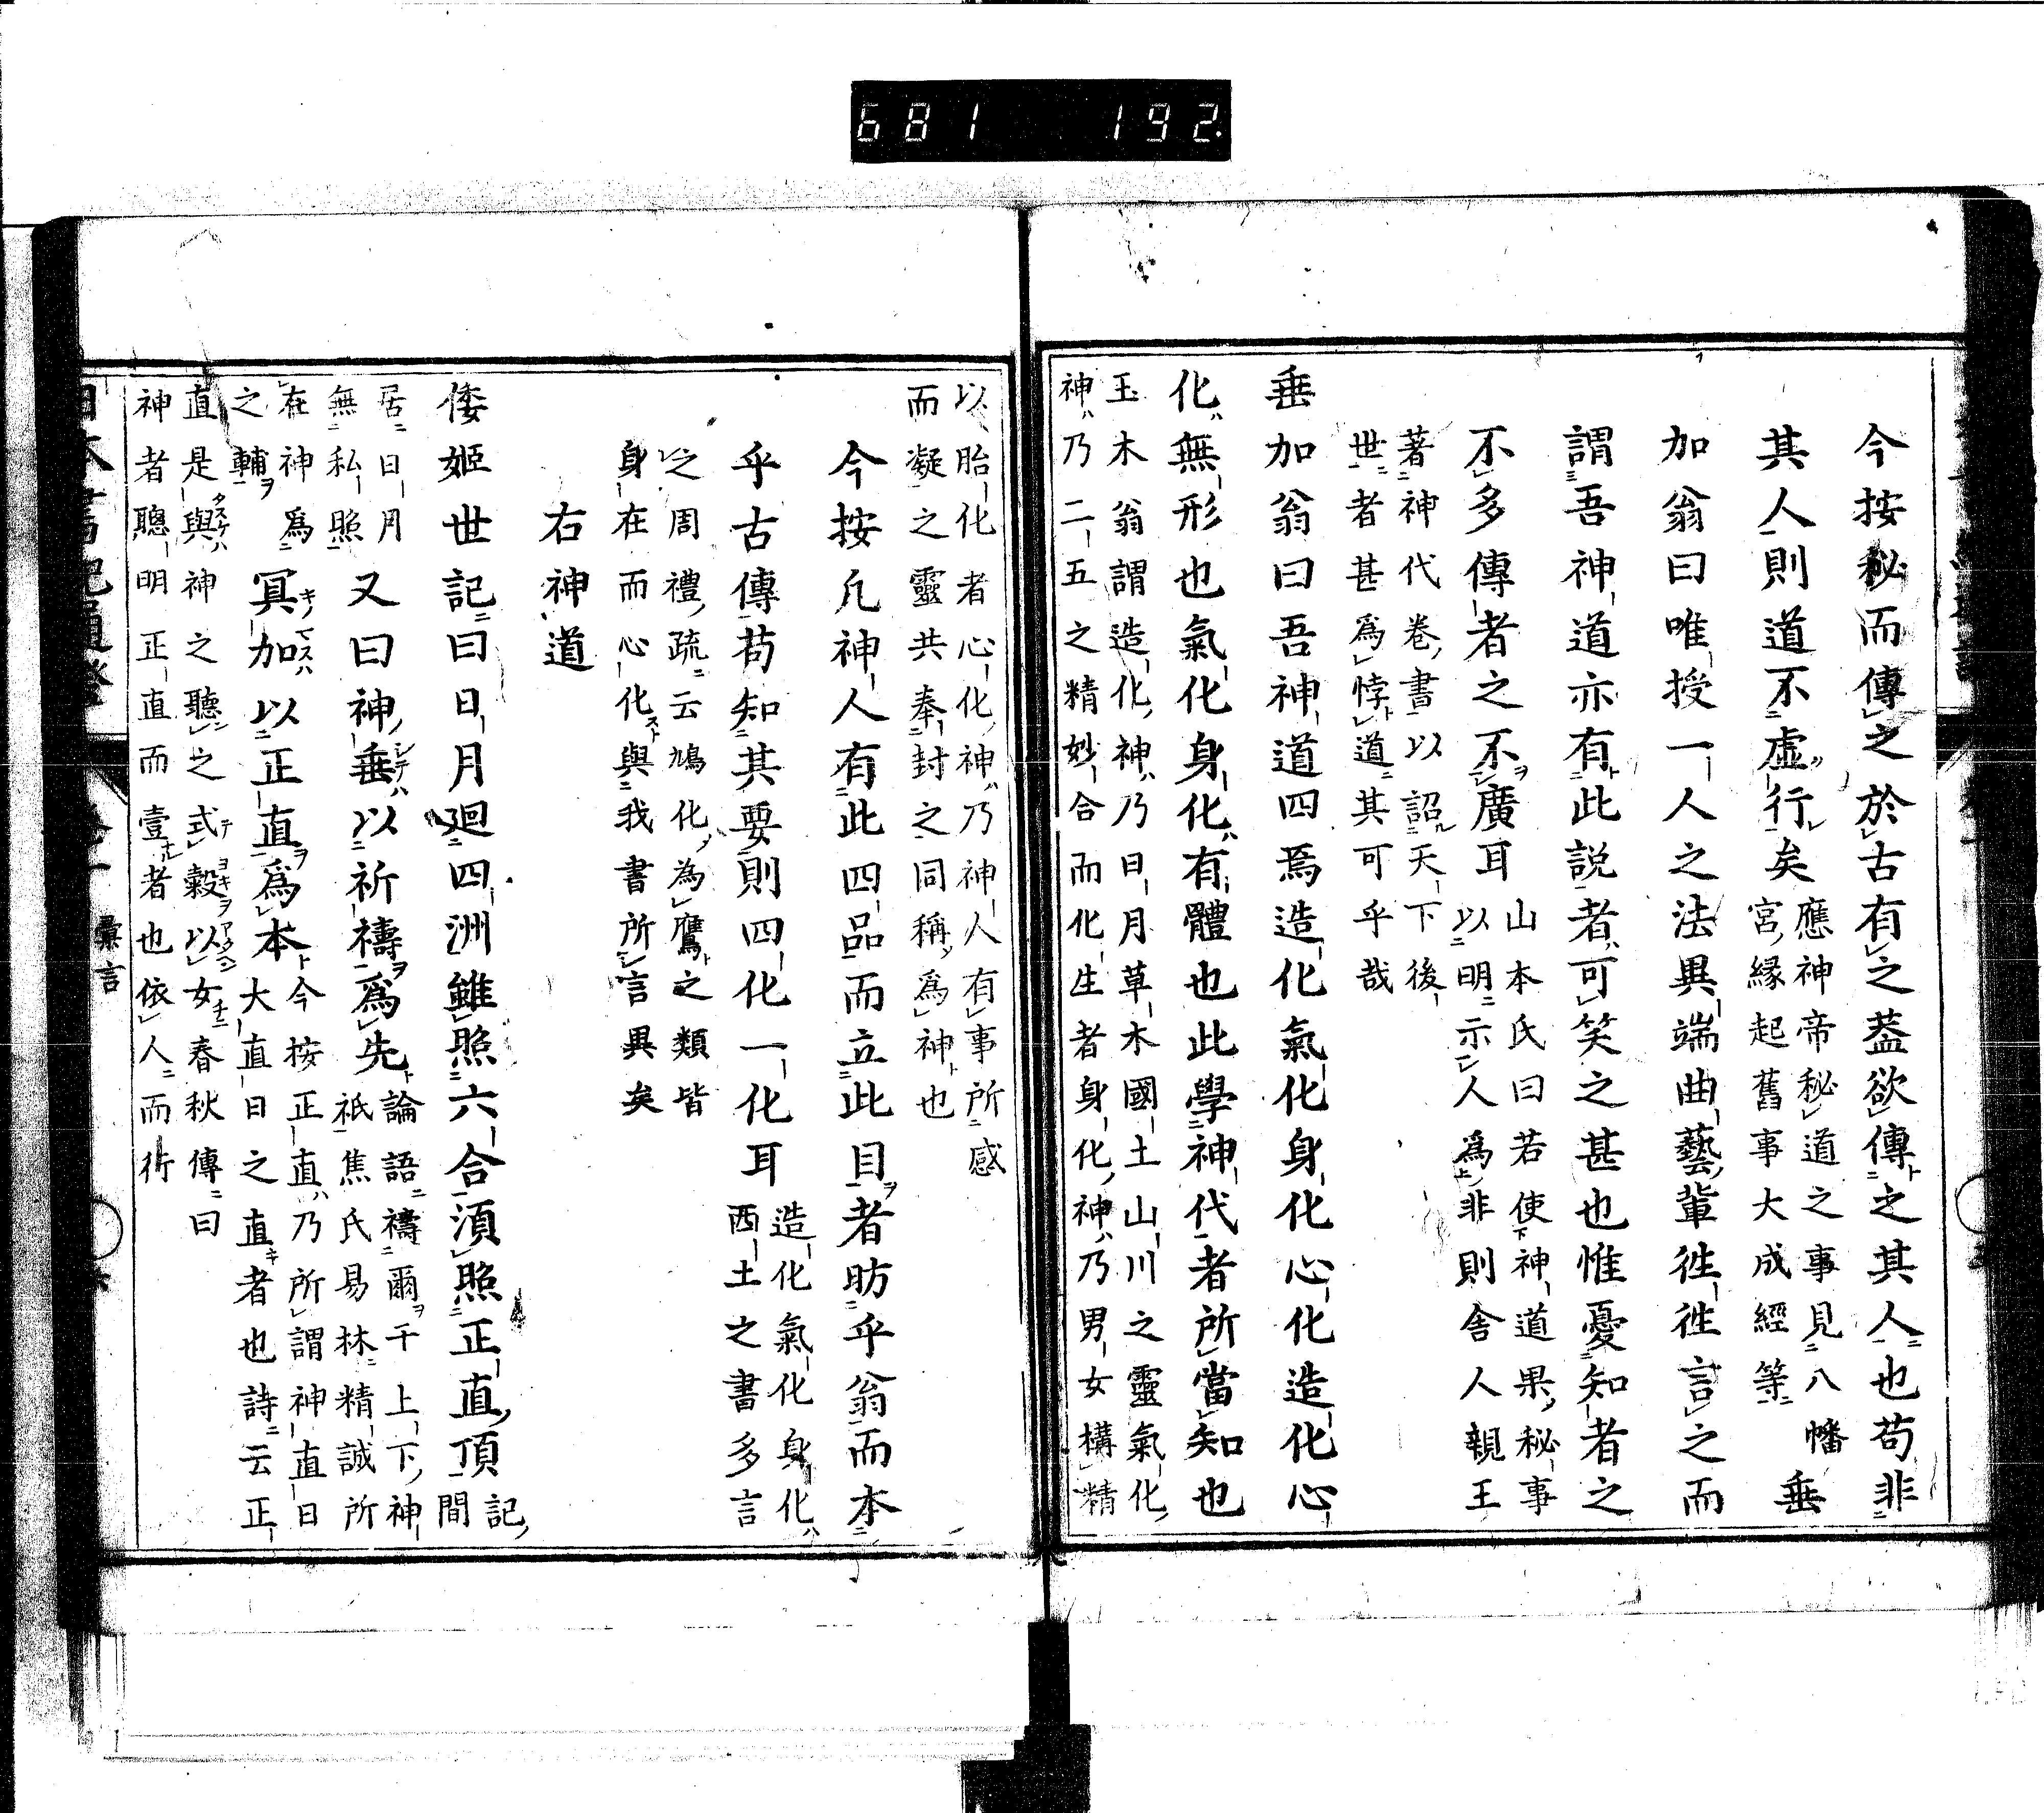 681 192
今按秘而傳之於古有之蓋欲傳之其人也苟非
其人則道不虛行矣應神帝秘道之事見八幡
宮緣起舊事大成經等垂
加翁曰唯授一人之法異端曲藝輩徃徃言之而
謂吾神道亦有此説者可笑之甚也惟憂知者之
不多傳者之不廣耳山本氏曰若使神道果秘事
以明示人爲非則舍人親王
著神代卷書以詔天下後
世者甚爲悖道其可乎哉
垂加翁曰吾神道四焉造化氣化身化心化造化心
化無形也氣化身化有體也此學神代者所當知也
玉木翁謂造化神乃日月草木國土山川之靈氣化
神乃二五之精妙合而化生者身化神乃男女構精
以胎化者心化神乃神人有事所感
而凝之靈共奉封之同稱爲神也
今按凡神人有此四品而立此目者昉乎翁而本
乎古傳苟知其要則四化一化耳造化氣化身化
西土之書多言
之周禮疏云鳩化爲鷹之類皆
身在而心化與我書所言異矣
右神道
倭姫世記曰日月廻四洲雖照六合須照正直頂記
間
居日月
無私照又曰神垂以祈禱爲先論語禱爾于上下神
祇焦氏易林精誠所
在神爲
之輔冥加以正直爲本今按正直乃所謂神直日
大直日之直者也詩云正
直是與神之聽之式穀以女春秋傳曰
神者聰明正直而壹者也依人而行
彙言